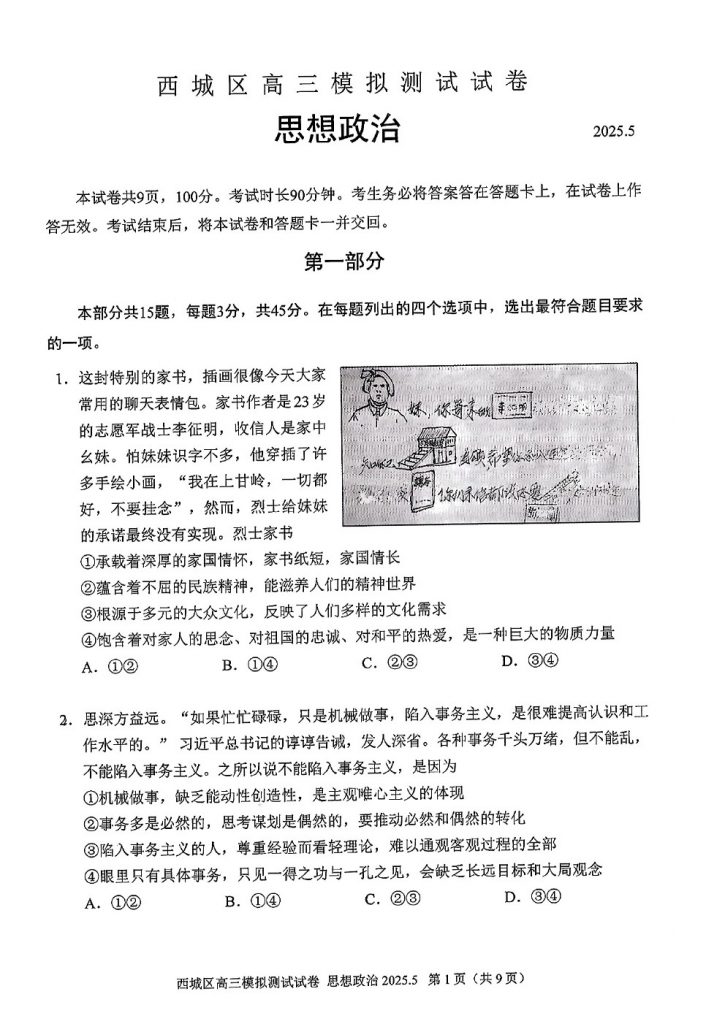 西城区高三模拟测试试卷
思想政治
2025.5
本试卷共9页，100分。考试时长90分钟。考生务必将答案答在答题卡上，在试卷上作
答无效。考试结束后，将本试卷和答题卡一并交回。
第一部分
本部分共15题，每题3分，共45分。在每题列出的四个选项中，选出最符合题目要求
的一项。
1．这封特别的家书，插画很像今天大家
常用的聊天表情包。家书作者是23岁
的志愿军战士李征明，收信人是家中
幺妹。怕妹妹识字不多，他穿插了许
多手绘小画，“我在上甘岭，一切都
好，不要挂念”，然而，烈士给妹妹
的承诺最终没有实现。烈士家书
①承载着深厚的家国情怀，家书纸短，家国情长
②蕴含着不屈的民族精神，能滋养人们的精神世界
③根源于多元的大众文化，反映了人们多样的文化需求
④饱含着对家人的思念、对祖国的忠诚、对和平的热爱，是一种巨大的物质力量
A．①② B．①④ C．②③ D．③④
2．思深方益远。“如果忙忙碌碌，只是机械做事，陷入事务主义，是很难提高认识和工
作水平的。” 习近平总书记的谆谆告诫，发人深省。各种事务千头万绪，但不能乱，
不能陷入事务主义。之所以说不能陷入事务主义，是因为
①机械做事，缺乏能动性创造性，是主观唯心主义的体现
②事务多是必然的，思考谋划是偶然的，要推动必然和偶然的转化
③陷入事务主义的人，尊重经验而看轻理论，难以通观客观过程的全部
④眼里只有具体事务，只见一得之功与一孔之见，会缺乏长远目标和大局观念
A．①② B．①④ C．②③ D．③④
西城区高三模拟测试试卷 思想政治 2025.5 第1页（共9页）